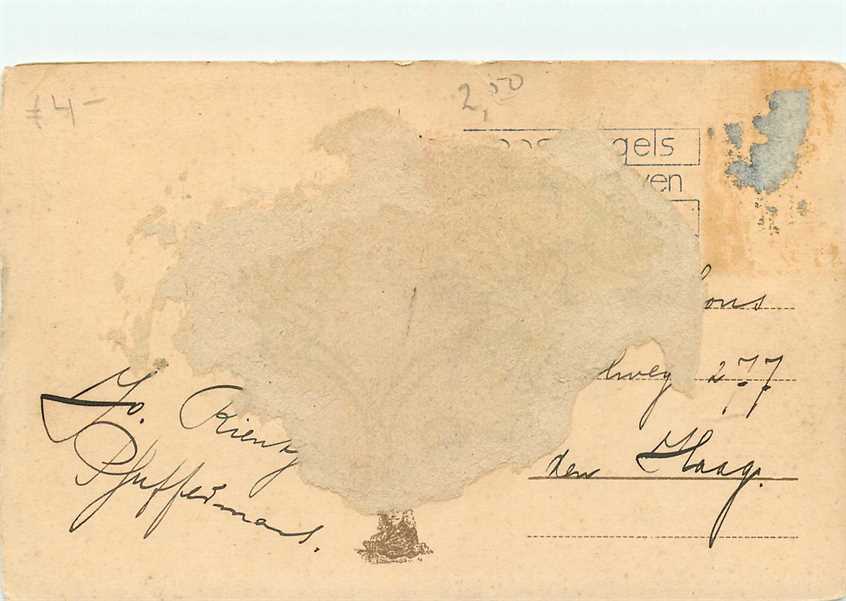 £ 4 -
2,50
gels
ven
ons
hweg 277
den Haag.
Jo. Rientz
Pfuffermans.